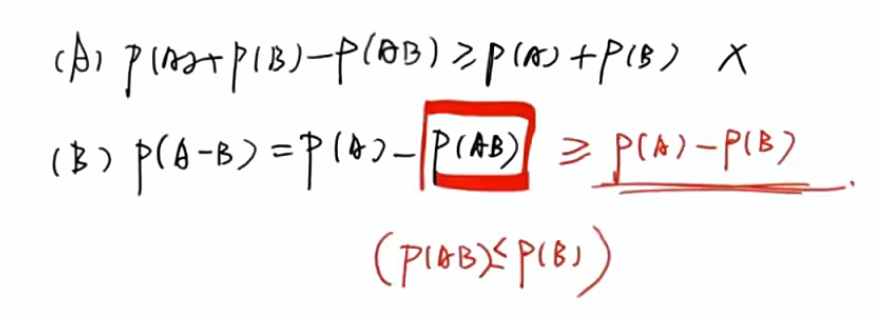 (A) P(A)+P(B)-P(AB)≥P(A)+P(B) ×
(B) P(A-B)=P(A)-P(AB) ≥ P(A)-P(B).
(P(AB)≤P(B))